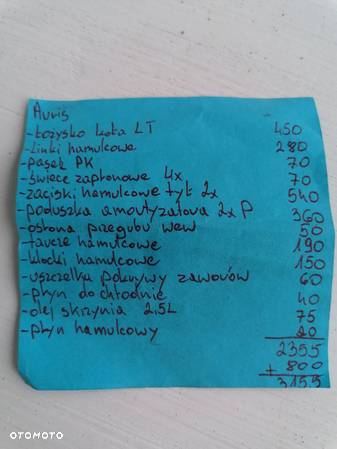 Auris
-łożysko koła LT 450
-linki hamulcowe 280
-pasek PK 70
-świece zapłonowe 4x 70
-zaciski hamulcowe tył 2x 540
-poduszka amortyzatora 2x P 360
-osłona przegubu wew 50
-tarcze hamulcowe 190
-klocki hamulcowe 150
-uszczelka pokrywy zaworów 60
-płyn do chłodnic 40
-olej skrzynia 2,5L 75
-płyn hamulcowy 20
2355
+ 800
3155
OTOMOTO